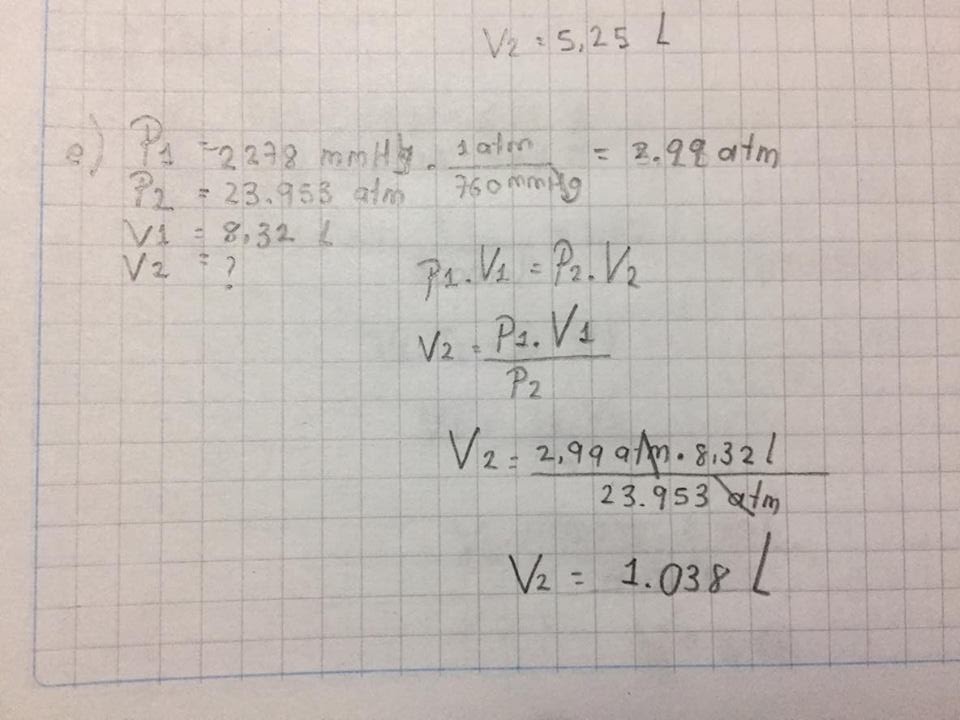 V2 = 5,25 L
e) P1 = 2278 mmHg . 1 atm / 760 mmHg = 2.99 atm
P2 = 23.953 atm
V1 = 8,32 l
V2 = ?
P1 . V1 = P2 . V2
V2 = P1 . V1 / P2
V2 = 2,99 atm . 8,32 l / 23.953 atm
V2 = 1.038 L